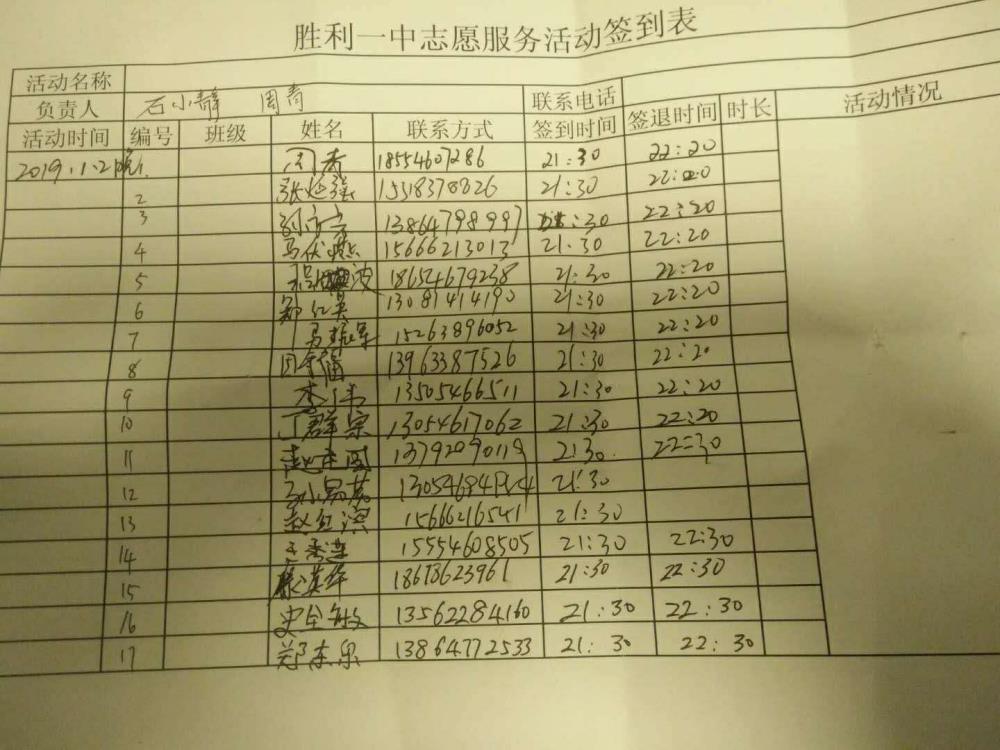 胜利一中志愿服务活动签到表
活动名称
负责人 石小静 周青 联系电话 活动情况
活动时间 编号 班级 姓名 联系方式 签到时间 签退时间 时长
2019.1.2晚 1. 周青 18554607286 21:30 22:20
2 张延强 15318378826 21:30 22:20
3 13864798997 21:30 22:20
4 马伏燕 15666213013 21:30 22:20
5 18654679238 21:30 22:20
6 郑仁英 13081414190 21:30 22:20
7 马振军 15263896052 21:30 22:20
8 13963387526 21:30 22:20
9 13505466511 21:30 22:20
10 丁群宗 13054617062 21:30 22:20
11 赵东国 21:30 22:30
12 21:30
13 赵红滨 15666216541 21:30
14 王秀莲 15554608505 21:30 22:30
15 18678623961 21:30 22:30
16 史全敏 13562284160 21:30 22:30
17 郑东泉 13864772533 21:30 22:30